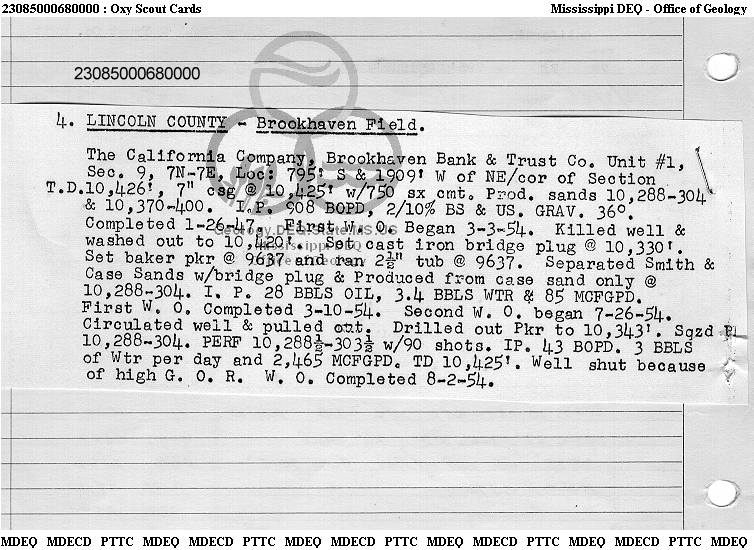 23085000680000 : Oxy Scout Cards Mississippi DEQ - Office of Geology
23085000680000
4. LINCOLN COUNTY - Brookhaven Field.
The California Company, Brookhaven Bank & Trust Co. Unit #1,
Sec. 9, 7N-7E, Loc: 795' S & 1909' W of NE/cor of Section
T.D.10,426', 7" csg @ 10,425' w/750 sx cmt. Prod. sands 10,288-304
& 10,370-400. I.P. 908 BOPD, 2/10% BS & US. GRAV. 36°.
Completed 1-26-47. First W. O. Began 3-3-54. Killed well &
washed out to 10,420'. Set cast iron bridge plug @ 10,330'.
Set baker pkr @ 9637 and ran 2½" tub @ 9637. Separated Smith &
Case Sands w/bridge plug & Produced from case sand only @
10,288-304. I. P. 28 BBLS OIL, 3.4 BBLS WTR & 85 MCFGPD.
First W. O. Completed 3-10-54. Second W. O. began 7-26-54.
Circulated well & pulled out. Drilled out Pkr to 10,343'. Sqzd
10,288-304. PERF 10,288½-303½ w/90 shots. IP. 43 BOPD. 3 BBLS
of Wtr per day and 2,465 MCFGPD. TD 10,425'. Well shut because
of high G. O. R. W. O. Completed 8-2-54.
MDEQ MDECD PTTC MDEQ MDECD PTTC MDEQ MDECD PTTC MDEQ MDECD PTTC MDEQ MDECD PTTC MDEQ